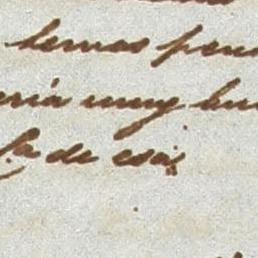 lemas pen
ería muy bu
de esa